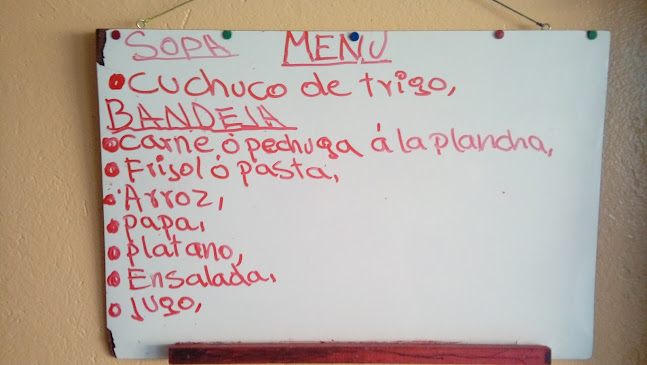 SOPA MENU
• cuchuco de trigo,
BANDEJA
• carne ó pechuga á la plancha,
• Frijol ó pasta,
• Arroz,
• papa,
• platano,
• Ensalada,
• jugo,